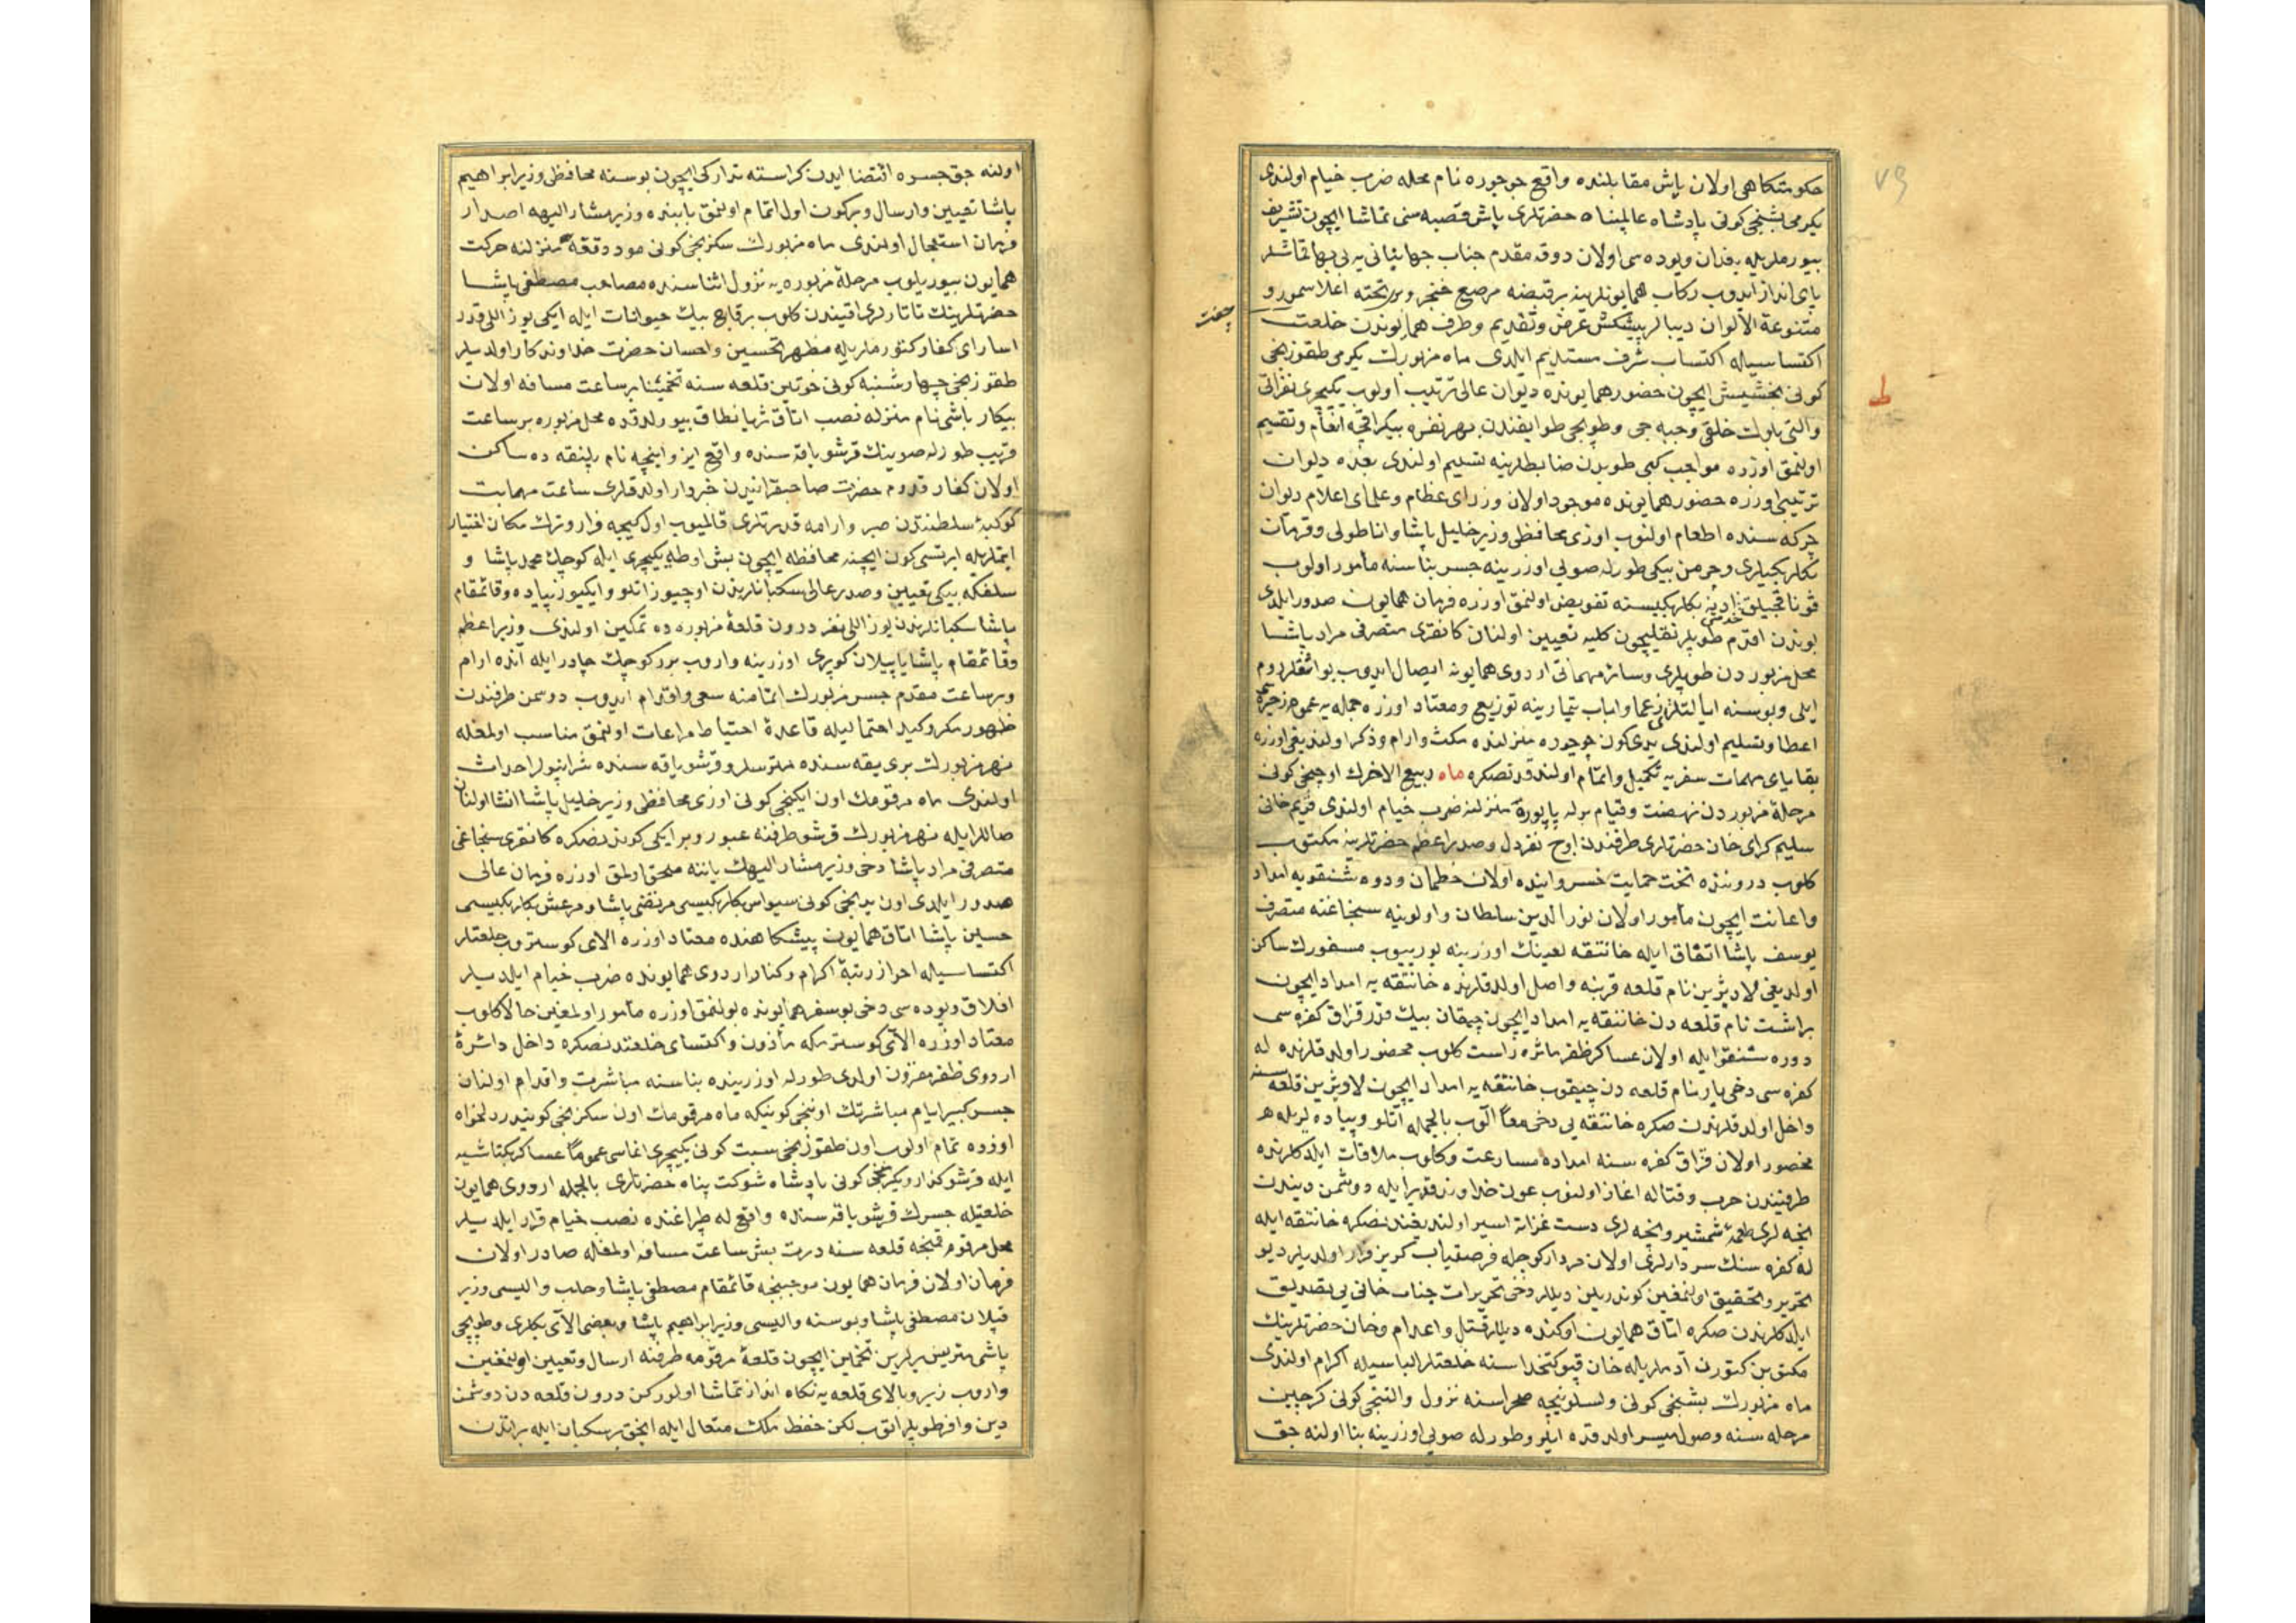 حکومتکاهی اولان یاش مقابلنده واقع جوجوره نام محله ضرب خیام اولندی
یکرمی بشنجی کونی پادشاه عالمپناه حضرتلری یاش قصبه سنی تماشا ایچون تشریف
بیورملریله بغدان ویوده سی اولان دوقه مقدم جناب جهانبانی یه بی بها قماشلر
پای انداز ایدوب رکاب همایونلرینه بر قبضه مرصع خنجر وبر تخته اعلا سمور و
جفت
متنوعة الالوان دیبالر پیشکش عرض وتقدیم وطرف همایوندن خلعت
اکتساسیله اکتساب شرف مستدیم ایلدی ماه مزبورك یکرمی طقوزنجی
کونی بخشیش ایچون حضور همایونده دیوان عالی ترتیب اولوب یکیچری نفراتی
والتی بلوك خلقی وجبه جی وطوپجی طوایفندن هر نفره بیکر اقچه انعام وتقسیم
اولنمق اوزره مواجب کبی طوپدن ضابطلرینه تسلیم اولندی بعده دیوان
ترتیبی اوزره حضور همایونده موجود اولان وزرای عظام وعلمای اعلام دیوان
چرکه سنده اطعام اولنوب اوزی محافظی وزیر خلیل پاشا واناطولی وقرمان
بکلربکیلری وچرمن بیکی طورله صویی اوزرینه جسر بناسنه مأمور اولوب
قوناقجیلق خدمتی ادنه بکلربکیسنه تفویض اولنمق اوزره فرمان همایون صدور ایلدی
بوندن اقدم طوپلر نقلیچون کلیه تعیین اولنان کانقری متصرفی مراد پاشا
محل مزبوردن طوپلری وسائر مهماتی اردوی همایونه ایصال ایدوب بواثقلر روم
ایلی وبوسنه ایالتلری زعما وارباب تیمارینه توزیع ومعتاد اوزره جمله یه
اعطا وتسلیم اولندی یدی کون جوجوره منزلنده مکث وارام وذکر اولندیغی اوزره
بقایای مهمات سفریه تکمیل واتمام اولندقدنصکره ماه ربیع الاخرك اوچنجی کونی
مرحلۀ مزبوردن نهضت وقیام برله پاپوره منزلنه ضرب خیام اولندی قریم خانی
سلیم کرای خان حضرتلری طرفندن اوچ نفر دل وصدراعظم حضرتلرینه مکتوب
کلوب دروننده تحت حمایت خسروانیده اولان خطمان ودوره شنقویه امداد
واعانت ایچون مأمور اولان نورالدین سلطان واولونیه سنجاغنه متصرف
یوسف پاشا اتفاق ایله خاننقه لعینك اوزرینه یوریوب مسفورك ساکن
اولدیغی لادیژین نام قلعه قربنه واصل اولدقلرنده خاننقه یه امداد ایچون
براشت نام قلعه دن خاننقه یه امداد ایچون چیقان بیك قدر قزاق کفره سی
دوره شنقو ایله اولان عساکر ظفر مأثره راست کلوب محصور اولدقلرنده له
کفره سی دخی بار نام قلعه دن چیقوب خاننقه یه امداد ایچون لادیژین قلعه سنه
داخل اولدقلرندن صکره خاننقه یی دخی معا الوب بالجمله اتلو وپیاده لریله
محصور اولان قزاق کفره سنه امداده مسارعت وکلوب ملاقات ایلدکلرنده
طرفیندن حرب وقتاله اغاز اولنوب عون خداوند قدیر ایله دوشمن دیندن
نیجه لری طعمۀ شمشیر ونیجه لری دست غزاته اسیر اولندیغندنصکره خاننقه ایله
له کفره سنك سردارلری اولان مردار کوجله فرصتیاب کریز وفرار اولدیلر دیو
تحریر وتحقیق اولنمغین کوندریلن دیللر دخی تحریرات جناب خانی یی تصدیق
ایلدکلرندن صکره اتاق همایون اوکنده دیللر قتل واعدام وخان حضرتلرینك
مکتوبن کتورن آدملریله خان قپو کتخداسنه خلعتلر الباسیله اکرام اولندی
ماه مزبورك بشنجی کونی ولسلونیجه صحراسنه نزول والتنجی کونی کرجین
مرحله سنه وصول میسر اولدقده ایلرو طورله صویی اوزرینه بنا اولنه جق
اولنه جق جسره اقتضا ایدن کراسته تدارکی ایچون بوسنه محافظی وزیر ابراهیم
پاشا تعیین وارسال وبر کون اول اتمام اولنمق بابنده وزیر مشار الیهه اصدار
فرمان استعجال اولندی ماه مزبورك سکزنجی کونی موددقعه منزلنه حرکت
همایون بیوریلوب مرحلۀ مزبوره یه نزول اثناسنده مصاحب مصطفی پاشا
حضرتلرینك تاتارلری اقیندن کلوب بر قاچ بیك حیوانات ایله ایکی یوز اللی قدر
اسارای کفار کتورملریله مظهر تحسین واحسان حضرت خداوندکار اولدیلر
طقوزنجی چهارشنبه کونی خوتین قلعه سنه تخمینا بر ساعت مسافه اولان
بیکار باشی نام منزله نصب اتاق ثریا نطاق بیورلدقده محل مزبوره بر ساعت
قریب طورله صوینك قرشو یاقه سنده واقع ایزوانیچه نام پلنقه ده ساکن
اولان کفار قدوم حضرت صاحبقرانیدن خبردار اولدقلری ساعت مهابت
کوکبۀ سلطنتدن صبر وارامه قدرتلری قالمیوب اول کیجه فرار وترك مکان اختیار
ایتملریله ایرتسی کون ایچنه محافظه ایچون بش اوطه یکیچری ایله کوچك محمد پاشا و
سلفکه بیکی تعیین وصدر عالی سکبانلرندن اوچیوز اتلو وایکیوز پیاده وقائمقام
پاشا سکبانلرندن یوز اللی نفر درون قلعۀ مزبوره ده تمکین اولندی وزیر اعظم
وقائمقام پاشا یاپیلان کوپری اوزرینه واروب برر کوچك چادر ایله آنده ارام
وبر ساعت مقدم جسر مزبورك اتمامنه سعی واقدام ایدوب دوشمن طرفندن
ظهور مکر وکید احتمالیله قاعدۀ احتیاط مراعات اولنمق مناسب اولمغله
نهر مزبورك بری یقه سنده متریسلر وقرشو یاقه سنده شرانپولر احداث
اولندی ماه مرقومك اون ایکنجی کونی اوزی محافظی وزیر خلیل پاشا انشا اولنان
صاللر ایله نهر مزبورك قرشو طرفنه عبور وبر ایکی کوندنصکره کانقری سنجاغی
متصرفی مراد پاشا دخی وزیر مشار الیهك یاننه ملحق اولمق اوزره فرمان عالی
صدور ایلدی اون یدنجی کونی سیواس بکلربکیسی مرتضی پاشا ومرعش بکلربکیسی
حسین پاشا اتاق همایون پیشکاهنده معتاد اوزره الای کوستروب خلعتلر
اکتساسیله احراز رتبۀ اکرام وکنار اردوی همایونده ضرب خیام ایلدیلر
افلاق ویوده سی دخی بو سفر همایونده بولنمق اوزره مأمور اولمغین حالا کلوب
معتاد اوزره الای کوسترمکه مأذون واکتسای خلعتدنصکره داخل دائرۀ
اردوی ظفر مقرون اولدی طورله اوزرینده بناسنه مباشرت واقدام اولنان
جسر کبیر ایام مباشرتك اوننجی کونیکه ماه مرقومك اون سکزنجی کونیدر دلخواه
اوزره تمام اولوب اون طقوزنجی سبت کونی یکیچری اغاسی عموما عساکر بکتاشیه
ایله قرشو کذار ویکرمنجی کونی پادشاه شوکت پناه حضرتلری بالجمله اردوی همایون
خلقیله جسرك قرشو یاقه سنده واقع له طپراغنده نصب خیام قرار ایلدیلر
محل مرقوم قمنیجه قلعه سنه درت بش ساعت مسافه اولمغله صادر اولان
فرمان اولان فرمان همایون موجبنجه قائمقام مصطفی پاشا وحلب والیسی وزیر
قپلان مصطفی پاشا وبوسنه والیسی وزیر ابراهیم پاشا وبعضی الای بکلری وطوپجی
باشی متریس یرلرین تخمین ایچون قلعۀ مرقومه طرفنه ارسال وتعیین اولنمغین
واروب زیر وبالای قلعه یه نکاه انداز تماشا اولورکن درون قلعه دن دوشمن
دین وافر طوپلر اتوب لکن حفظ ملك متعال ایله انجق بر سکبان ایله براتدن